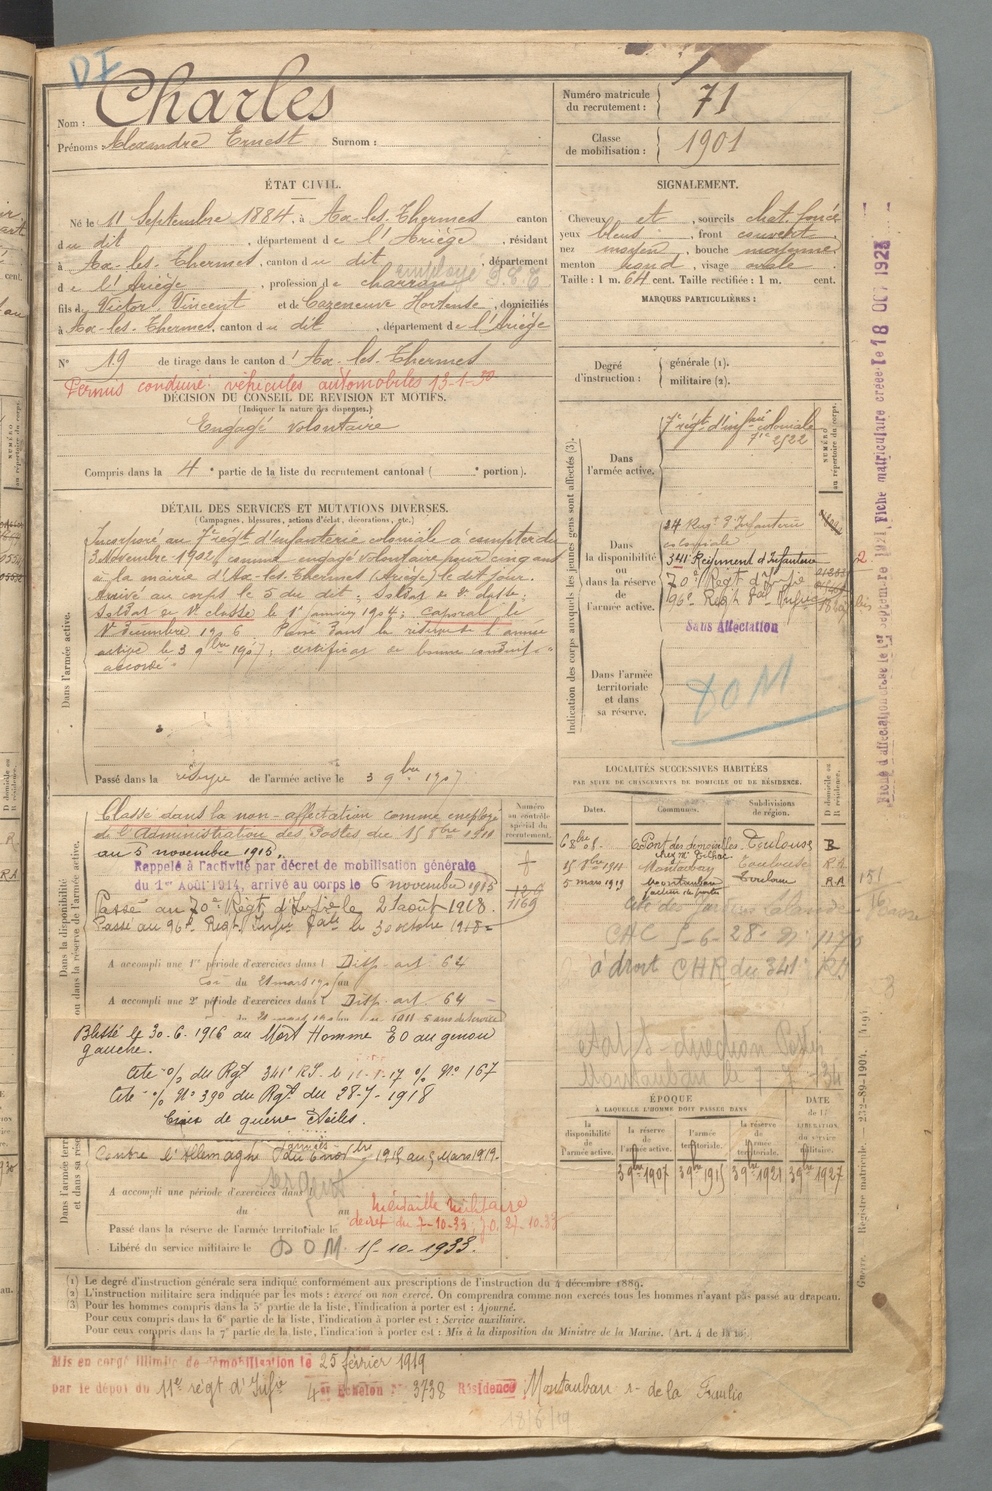 DI
Nom : Charles
Prénoms : Alexandre Ernest Surnom :
Numéro matricule du recrutement : 71
Classe de mobilisation : 1901
ÉTAT CIVIL.
Né le 11 Septembre 1884, à Ax-les-Thermes canton
du dit , département de l'Ariège , résidant
à Ax-les-Thermes, canton du dit , département
de l'Ariège , profession de charron employé P.T.T.
fils de Victor, Vincent et de Cazeneuve Hortense , domiciliés
à Ax-les-Thermes, canton du dit , département de l'Ariège
N° 19 de tirage dans le canton d'Ax-les-Thermes
Permis conduire véhicules automobiles 13-1-30
DÉCISION DU CONSEIL DE REVISION ET MOTIFS.
(Indiquer la nature des dispenses.)
Engagé volontaire
Compris dans la 4e partie de la liste du recrutement cantonal ( e portion).
SIGNALEMENT.
Cheveux et , sourcils chat. foncé
yeux bleus , front couvert
nez moyen , bouche moyenne
menton rond , visage ovale
Taille : 1 m. 64 cent. Taille rectifiée : 1 m. cent.
MARQUES PARTICULIÈRES :
Degré d'instruction : générale (1). militaire (2).
DÉTAIL DES SERVICES ET MUTATIONS DIVERSES.
(Campagnes, blessures, actions d'éclat, décorations, etc.)
Dans l'armée active.
Incorporé au 7e régt d'infanterie coloniale à compter du
3 Novembre 1902, comme engagé volontaire pour cinq ans
à la mairie d'Ax-les-Thermes (Ariège) le dit jour.
Arrivé au corps le 5 du dit ; Soldat de 2e classe ;
Soldat de 1e classe le 1er janvier 1904 ; Caporal le
1er Décembre 1906. Passé dans la réserve de l'armée
active le 3 9bre 1907 ; certificat de bonne conduite
accordé
Passé dans la réserve de l'armée active le 3 9bre 1907
Indication des corps auxquels les jeunes gens sont affectés (3).
NUMÉRO au répertoire du corps.
Dans l'armée active.
7e régt d'infrie coloniale
7ie 2522
Dans la disponibilité ou dans la réserve de l'armée active.
24 Regt d'Infanterie
coloniale
341e Régiment d'Infanterie
70e Régt d'Infrie
96e Régt Infrie
Sans Affectation
Dans l'armée territoriale et dans sa réserve.
DOM
Fiche matricule créée le 18 OCT 1923
Dans la disponibilité ou dans la réserve de l'armée active.
Numéro au contrôle spécial du recrutement.
Classé dans la non-affectation comme employé
de l'Administration des Postes du 15 8bre 1911
au 5 novembre 1915.
Rappelé à l'activité par décret de mobilisation générale
du 1er Août 1914, arrivé au corps le 6 novembre 1915
Passé au 70e Régt d'Infrie le 2 août 1918.
Passé au 96e Regt Infie le 30 octobre 1918
1169
A accompli une 1re période d'exercices dans l Disp. art. 64
A accompli une 2e période d'exercices dans l Disp. art. 64
Blessé le 30-6-1916 au Mort Homme EO au genou
gauche.
Cité o/ du Rgt 341e RI le 11-5-17 o/ N° 167
Cité o/ N° 390 du Rgt du 28-7-1918
Croix de guerre Etoiles.
LOCALITÉS SUCCESSIVES HABITÉES
PAR SUITE DE CHANGEMENTS DE DOMICILE OU DE RÉSIDENCE.
Dates. Communes. Subdivisions de région. D domicile ou R résidence.
Pont des demoiselles Toulouse R
Montauban Toulouse RA
5 mars 1919 Montauban Toulouse RA
CAC 5-6-28
à droit CHR du 341e
Montauban le 7-7-34
Dans l'armée terr. et dans sa rése.
Contre l'Allemagne du 6 novbre 1915 au 5 Mars 1919.
Sergent
A accompli une période d'exercices dans
du au
Médaille Militaire
décret du 7-10-33 ; J.O. 27-10-33
Passé dans la réserve de l'armée territoriale le
Libéré du service militaire le DOM 15-10-1933.
ÉPOQUE À LAQUELLE L'HOMME DOIT PASSER DANS
DATE de la LIBÉRATION du service militaire.
la disponibilité de l'armée active. la réserve de l'armée active. l'armée territoriale. la réserve de l'armée territoriale.
3 9bre 1907 3 9bre 1915 3 9bre 1921 3 9bre 1927
(1) Le degré d'instruction générale sera indiqué conformément aux prescriptions de l'instruction du 4 décembre 1889.
(2) L'instruction militaire sera indiquée par les mots : exercé ou non exercé. On comprendra comme non exercés tous les hommes n'ayant pas passé au drapeau.
(3) Pour les hommes compris dans la 5e partie de la liste, l'indication à porter est : Ajourné.
Pour ceux compris dans la 6e partie de la liste, l'indication à porter est : Service auxiliaire.
Pour ceux compris dans la 7e partie de la liste, l'indication à porter est : Mis à la disposition du Ministre de la Marine. (Art. 4 de la loi).
Guerre. Registre matricule. — 232-89-1904.
Mis en congé illimité de démobilisation le 25 février 1919
par le dépôt du 11e régt d'Infie 4e Echelon N° 3738 Résidence Montauban r. de la
18/6/19